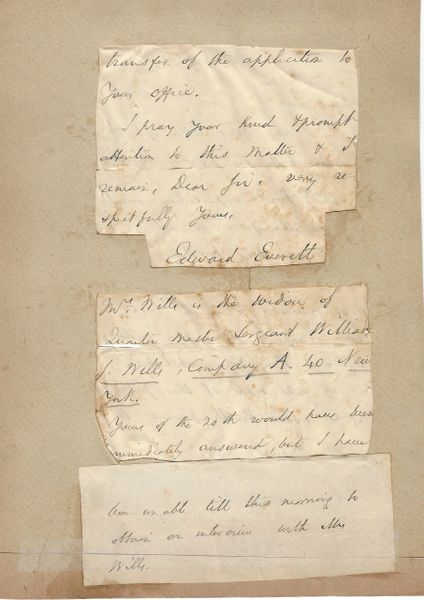 transfer of the application to
your office.
I pray your kind & prompt
attention to this matter & I
remain, Dear Sir, very re
spectfully Yours,
Edward Everett
Mrs. Wills is the widow of
Quarter Master Sergeant William
J. Wills, Company A. 40. New
York.
Yours of the 20th would have been
immediately answered, but I have
been unable till this morning to
obtain an interview with Mrs
Wills.